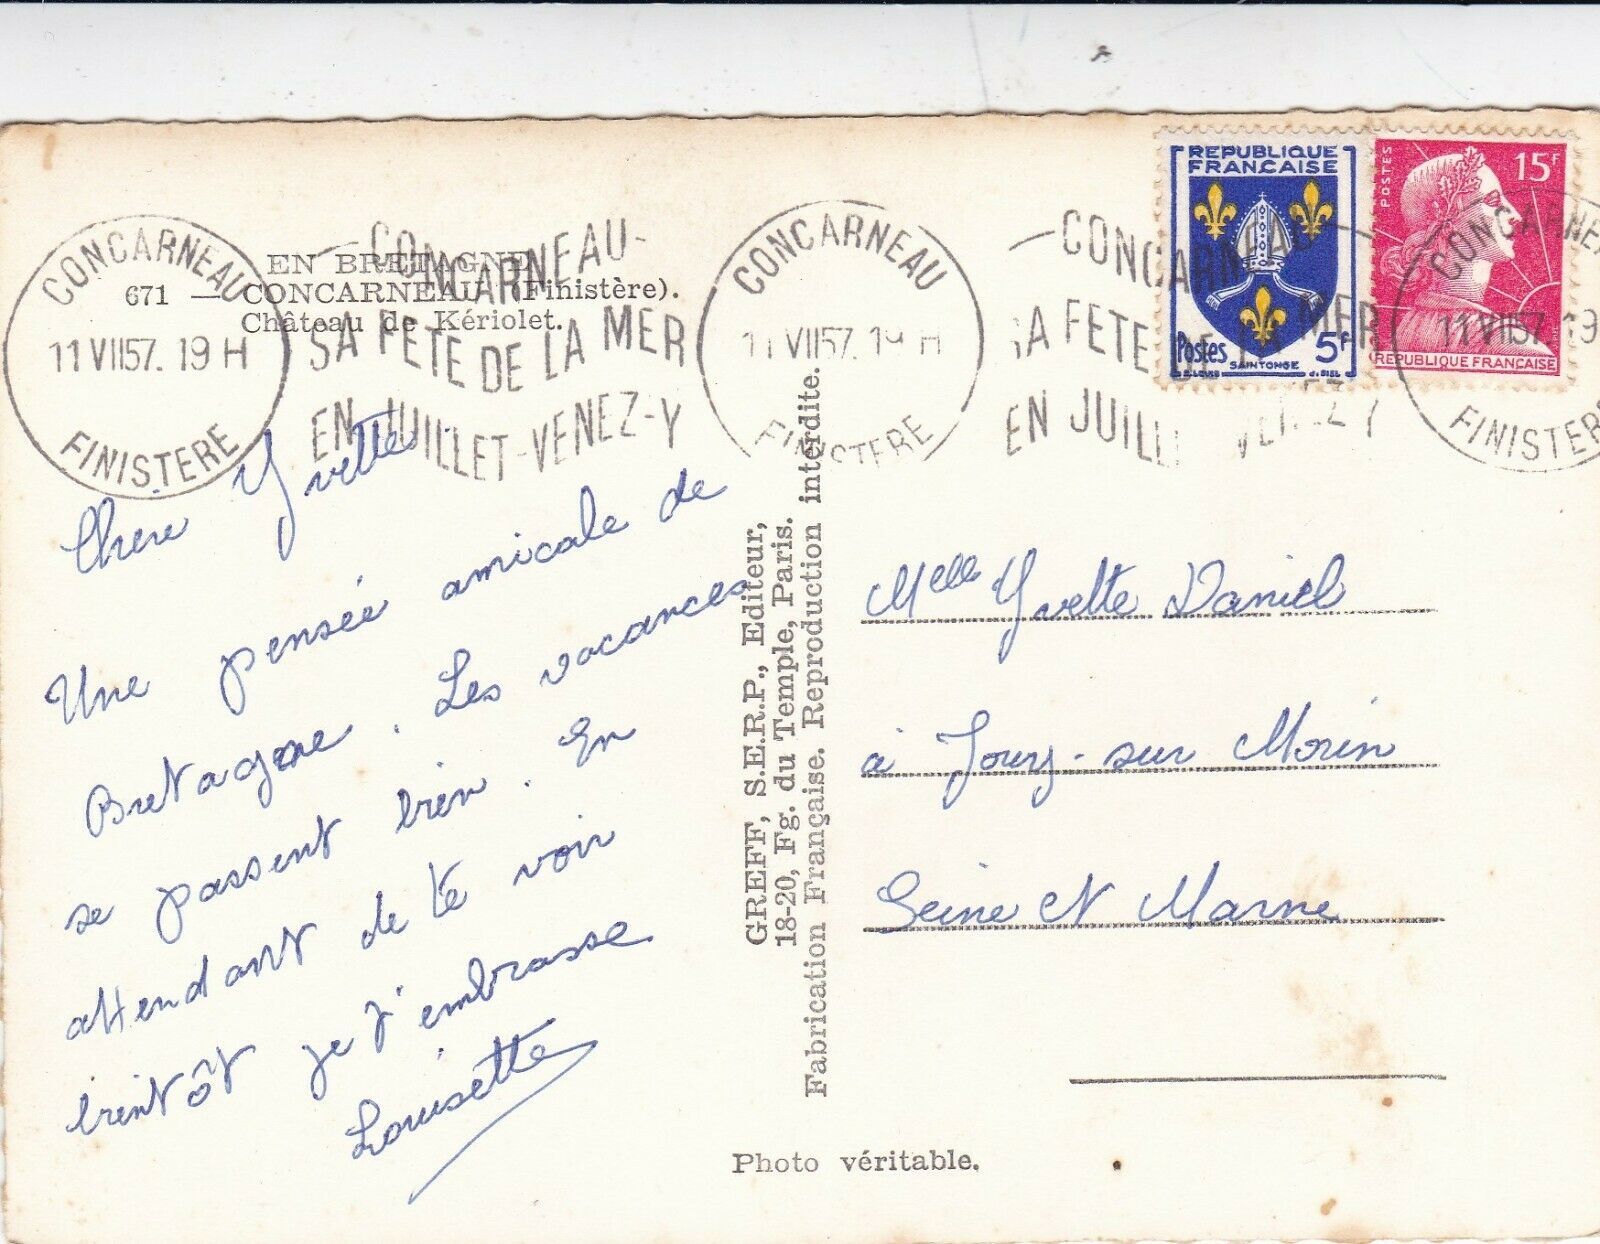 EN BRETAGNE
671 — CONCARNEAU (Finistère).
Château de Kériolet.
CONCARNEAU
11 VII57. 19 H
FINISTERE
CONCARNEAU-
SA FETE DE LA MER
EN JUILLET-VENEZ-Y
CONCARNEAU
11 VII57. 19 H
FINISTERE
CONCARNEAU
SA FETE DE LA MER
EN JUILLET VENEZ Y
REPUBLIQUE
FRANÇAISE
Postes 5F
SAINTONGE
POSTES
15F
REPUBLIQUE FRANÇAISE
CONCARNEAU
11 VII57. 19
FINISTERE
Chère Yvette
Une pensée amicale de
Bretagne. Les vacances
se passent bien. En
attendant de te voir
bientôt je t'embrasse
Louisette
GREFF, S.E.R.P., Editeur,
18-20, Fg. du Temple, Paris.
Fabrication Française. Reproduction interdite.
Melle Yvette Daniel
à Jouy-sur Morin
Seine et Marne
Photo véritable.